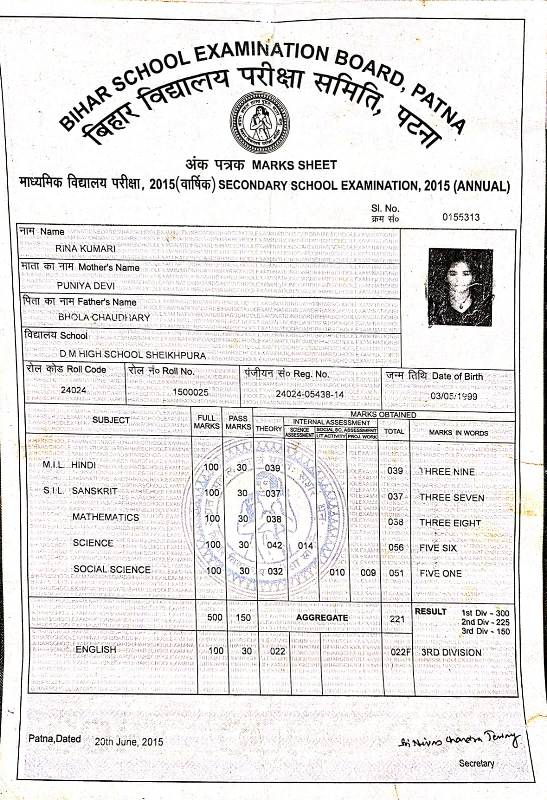 BIHAR SCHOOL EXAMINATION BOARD, PATNA
बिहार विद्यालय परीक्षा समिति, पटना
अंक पत्रक MARKS SHEET
माध्यमिक विद्यालय परीक्षा, 2015(वार्षिक) SECONDARY SCHOOL EXAMINATION, 2015 (ANNUAL)
Sl. No.
क्रम सं० 0155313
नाम Name
RINA KUMARI
माता का नाम Mother's Name
PUNIYA DEVI
पिता का नाम Father's Name
BHOLA CHAUDHARY
विद्यालय School
D M HIGH SCHOOL SHEIKHPURA
रोल कोड Roll Code रोल नं० Roll No. पंजीयन सं० Reg. No. जन्म तिथि Date of Birth
24024 1500025 24024-05438-14 03/05/1999
SUBJECT FULL MARKS PASS MARKS MARKS OBTAINED
THEORY INTERNAL ASSESSMENT TOTAL MARKS IN WORDS
SCIENCE ASSESSMENT SOCIAL SC. ASSESSMENT
LIT ACTIVITY PROJ. WORK
M.I.L. HINDI 100 30 039 039 THREE NINE
S.I.L. SANSKRIT 100 30 037 037 THREE SEVEN
MATHEMATICS 100 30 038 038 THREE EIGHT
SCIENCE 100 30 042 014 056 FIVE SIX
SOCIAL SCIENCE 100 30 032 010 009 051 FIVE ONE
500 150 AGGREGATE 221 RESULT 1st Div - 300
2nd Div - 225
3rd Div - 150
ENGLISH 100 30 022 022F 3RD DIVISION
Patna,Dated 20th June, 2015
Secretary